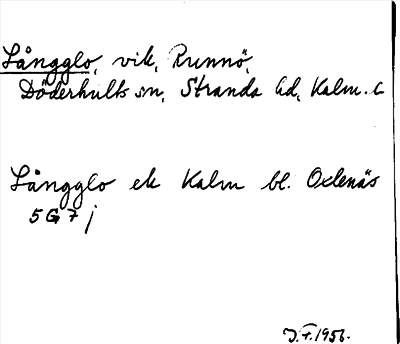 Långglo, vik, Runnö,
Döderhults sn, Stranda hd, Kalm. l.
Långglo ek Kalm bl. Oxlenäs
5 G 7 j
J.F. 1956.